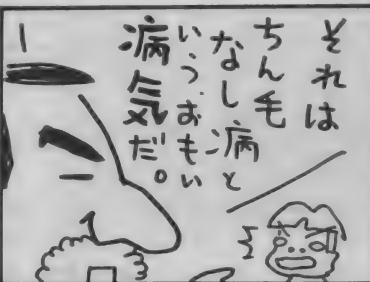 それは
ちん毛
なし病と
いうおもい
病気だ。